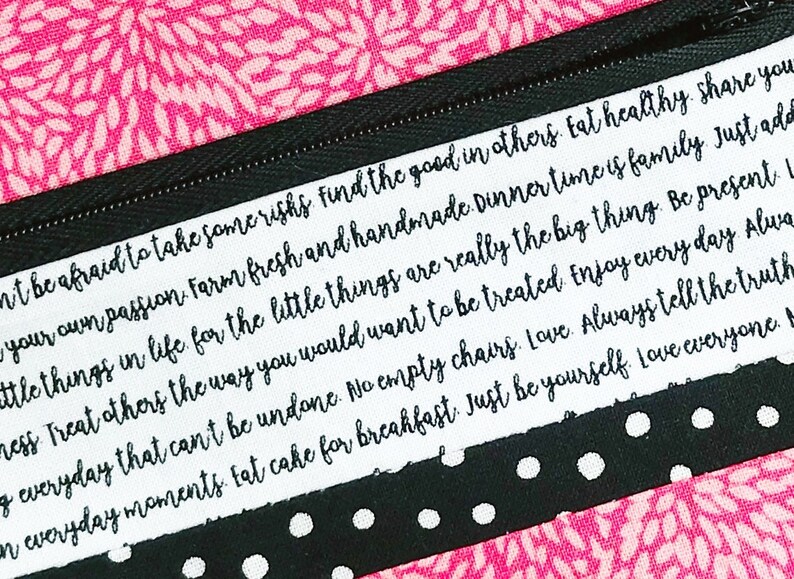 n't be afraid to take some risks. Find the good in others. Eat healthy. Share you
your own passion. Farm fresh and handmade. Dinner time is family. Just add
ttle things in life, for the little things are really the big thing. Be present. L
ness. Treat others the way you would want to be treated. Enjoy every day. Alwa
g everyday that can't be undone. No empty chairs. Love. Always tell the truth
n everyday moments. Eat cake for breakfast. Just be yourself. Love everyone. N